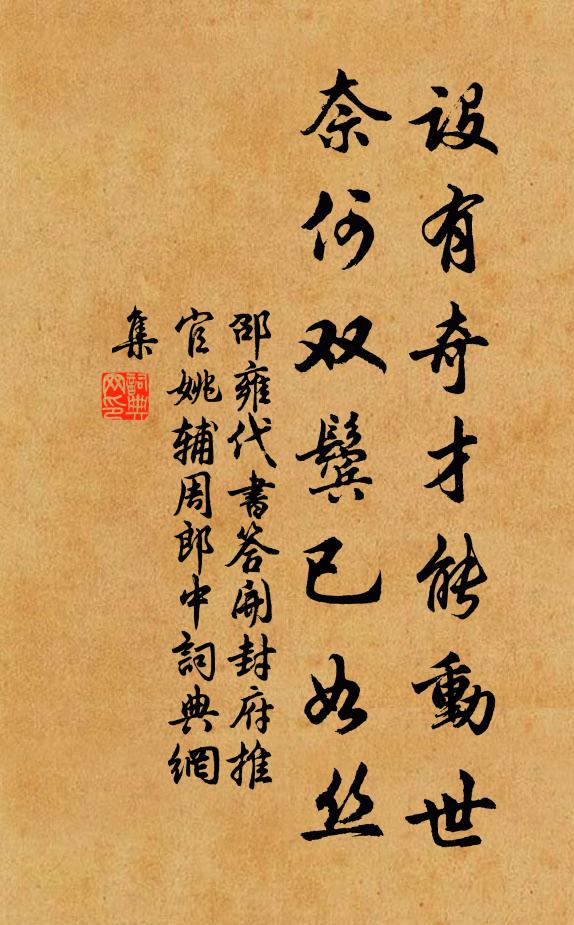 设有奇才能動世
奈何双鬓已如丝
邵雍代書答開封府推
官姚辅周郎中詞典網
集
詞典
网印